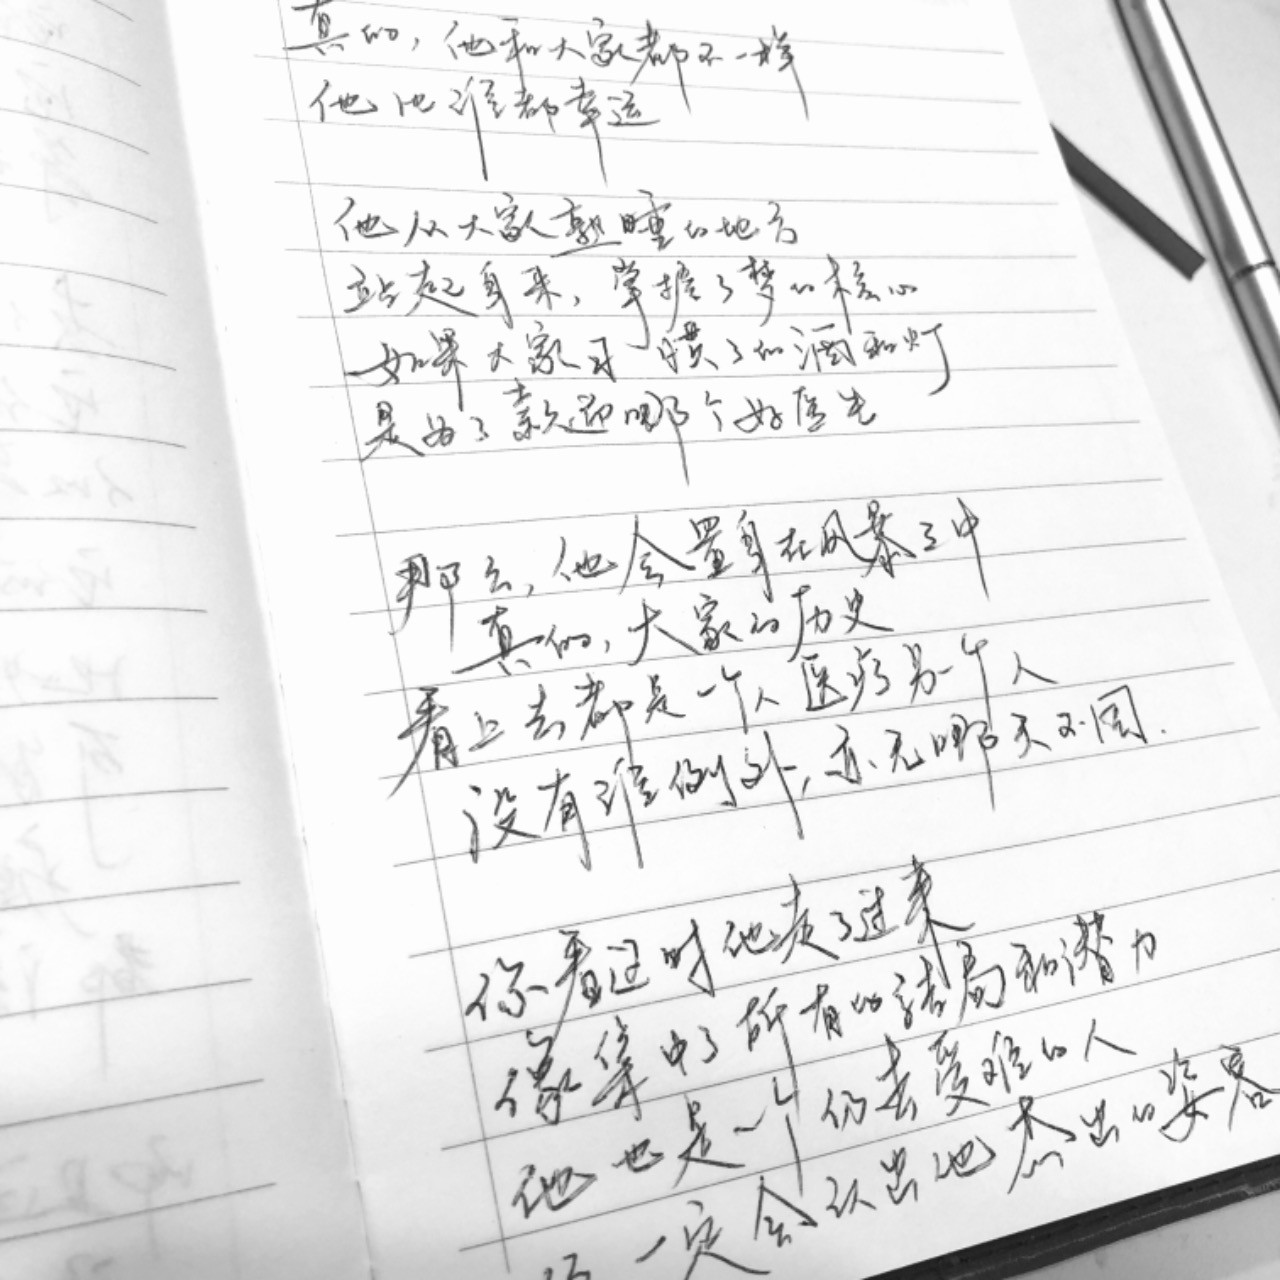 真的，他和大家都不一样
他比谁都幸运
他从大家熟睡的地方
站起身来，掌握了梦的核心
如果大家牙 喷了的酒和灯
是为了款迎哪个好医生
那么，他会置身在风暴之中
真的，大家的历史
看上去都是一个人医疗另一个人
没有谁例外，亦无哪天不同.
你看这时他走了过来
像集中了所有的结局和潜力
他也是一个仍去受难的人
你一定会认出他杰出的姿容